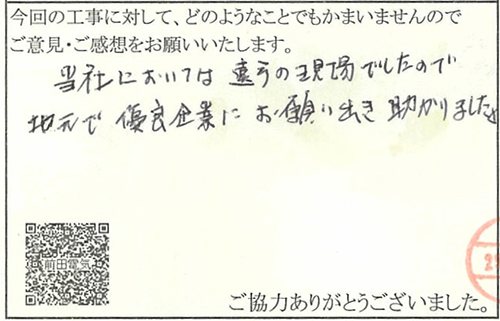 今回の工事に対して、どのようなことでもかまいませんので
ご意見・ご感想をお願いいたします。
当社においては遠方の現場でしたので
地元で優良企業にお願い出き助かりました。
前田電気
ご協力ありがとうございました。